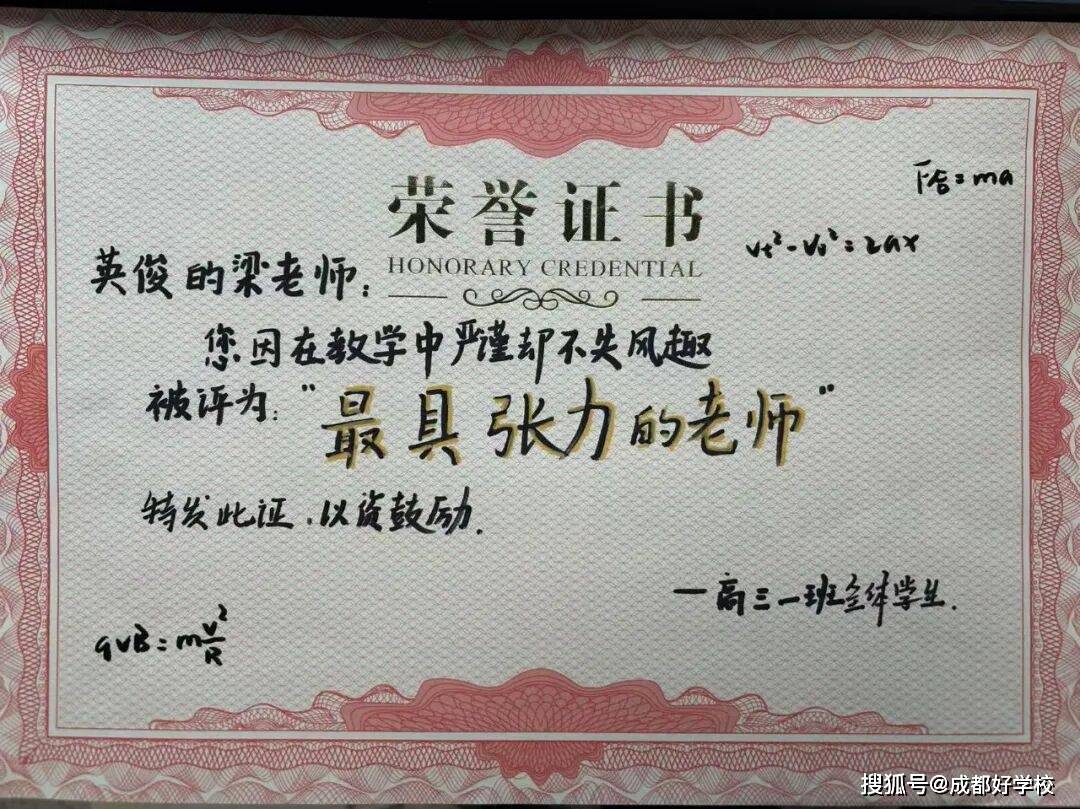 荣誉证书
HONORARY CREDENTIAL
F合=ma
vt²-v0²=2ax
英俊的梁老师:
您因在教学中严谨却不失风趣
被评为:“最具张力的老师”
特发此证,以资鼓励.
—高三一班全体学生.
qvB=mv²/R
搜狐号@成都好学校